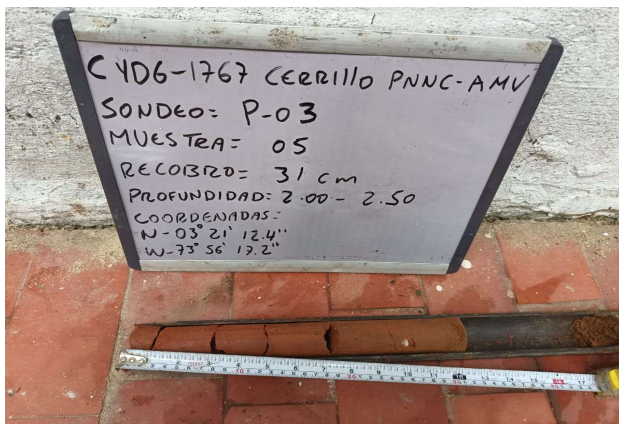 CYDG-1767 CERRIllO PNNC-AMV
SONDEO: P-03
MUESTRA: 05
RECOBRO= 31 cm
PROFUNDIDAD: 2.00 - 2.50
COORDENADAS:
N-03° 21' 12.4"
W-73° 56' 17.2"